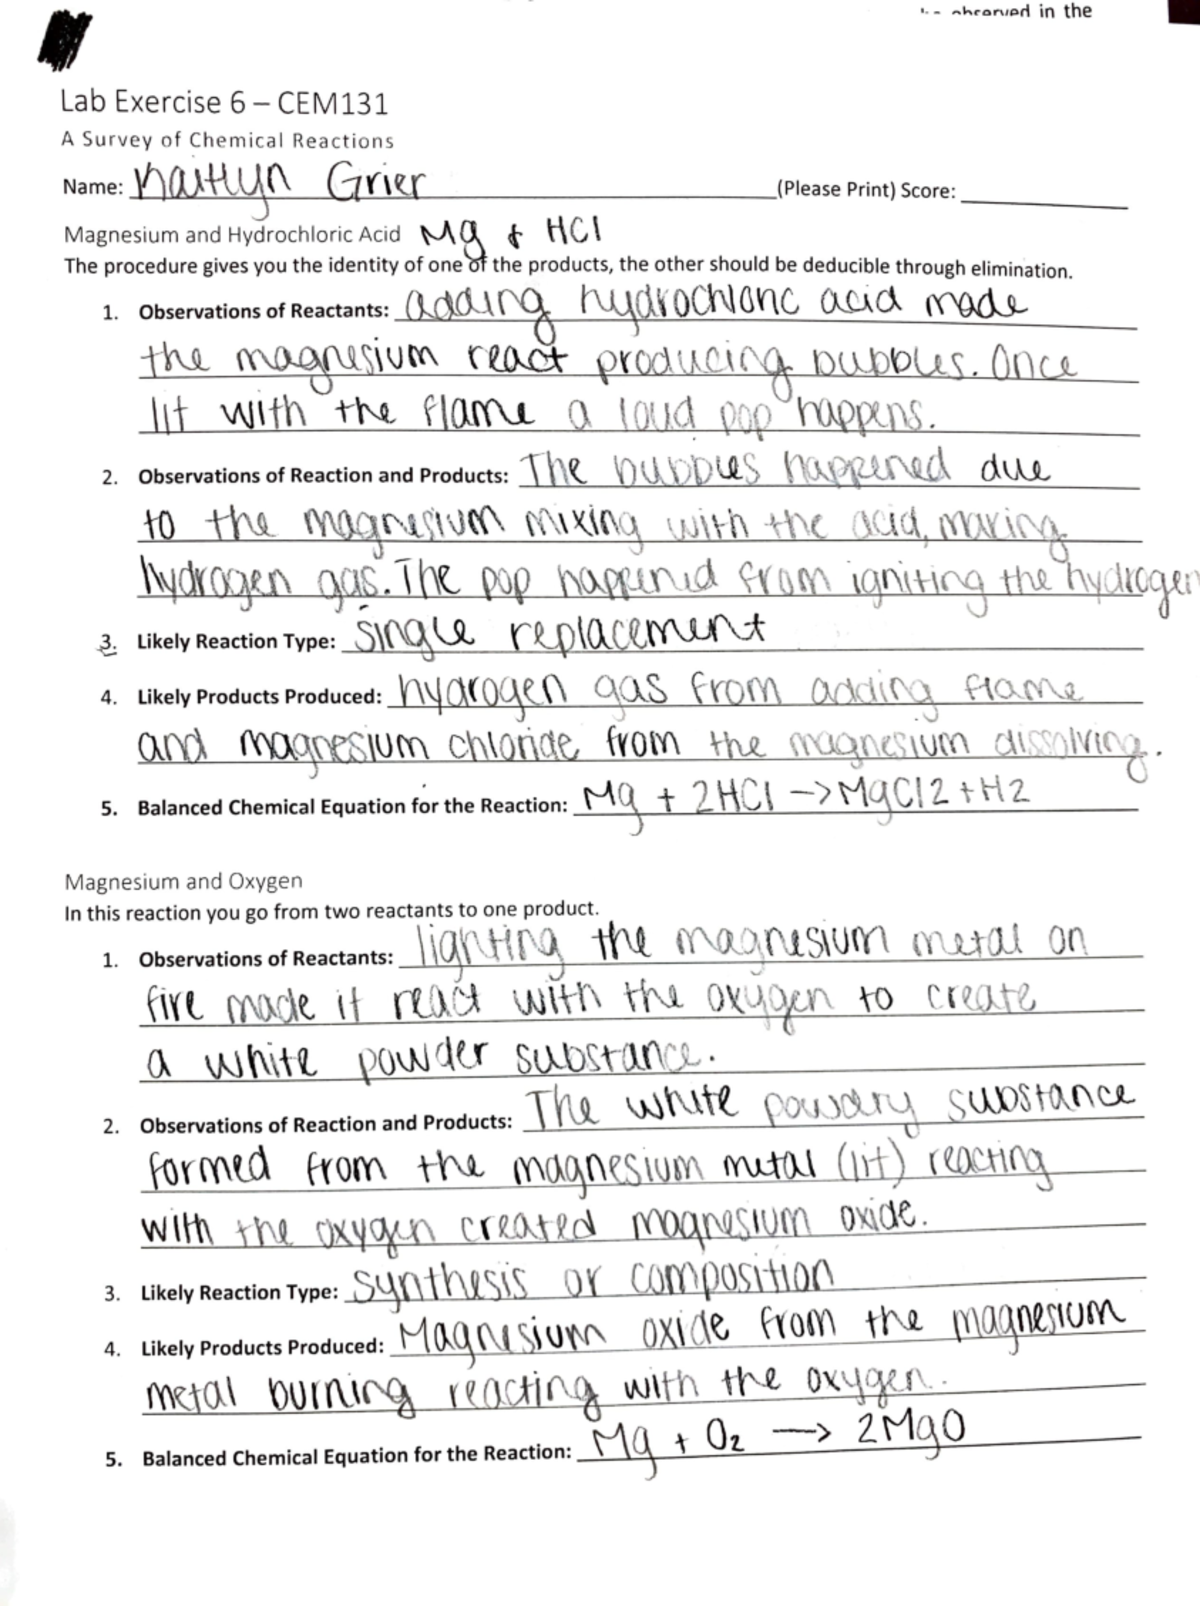 observed in the
Lab Exercise 6 – CEM131
A Survey of Chemical Reactions
Name: Kaitlyn Grier (Please Print) Score:
Magnesium and Hydrochloric Acid Mg & HCl
The procedure gives you the identity of one of the products, the other should be deducible through elimination.
1. Observations of Reactants: adding hydrochloric acid made
the magnesium react producing bubbles. Once
lit with the flame a loud pop happens.
2. Observations of Reaction and Products: The bubbles happened due
to the magnesium mixing with the acid, making
hydrogen gas. The pop happened from igniting the hydrogen
3. Likely Reaction Type: single replacement
4. Likely Products Produced: hydrogen gas from adding flame
and magnesium chloride from the magnesium dissolving.
5. Balanced Chemical Equation for the Reaction: Mg + 2HCl -> MgCl2 + H2
Magnesium and Oxygen
In this reaction you go from two reactants to one product.
1. Observations of Reactants: lighting the magnesium metal on
fire made it react with the oxygen to create
a white powder substance.
2. Observations of Reaction and Products: The white powdery substance
formed from the magnesium metal (lit) reacting
with the oxygen created magnesium oxide.
3. Likely Reaction Type: synthesis or composition
4. Likely Products Produced: Magnesium oxide from the magnesium
metal burning reacting with the oxygen.
5. Balanced Chemical Equation for the Reaction: Mg + O₂ —> 2MgO